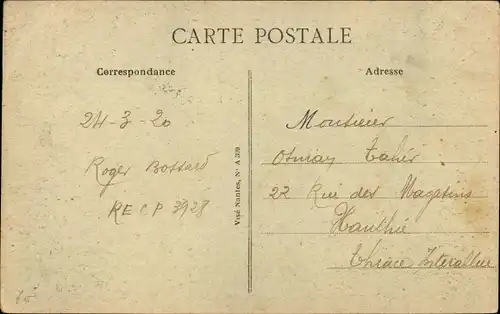 CARTE POSTALE
Correspondance
Adresse
24-3-20
Roger Bossard
RECP 3928
Visé Nantes, N° A 309
Monsieur
Osman Tahir
22 Rue des Magasins
Xanthie
Thrace Interalliée